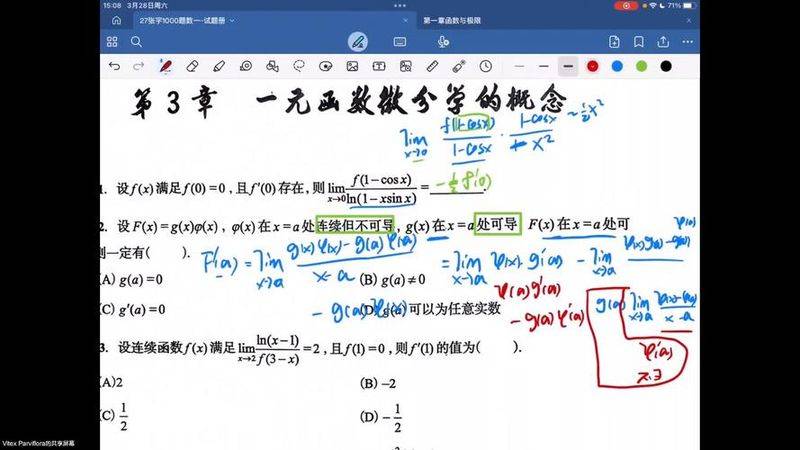 15:08 3月28日周六
71%
27张宇1000题数一·试题册
第一章函数与极限
第3章 一元函数微分学的概念
lim x→0 f(1-cosx)/(1-cosx) · (1-cosx)/(-x²) ~ ½x²
1. 设 f(x) 满足 f(0)=0,且 f′(0) 存在,则 lim x→0 f(1-cosx)/ln(1-xsinx) = -½f′(0)
2. 设 F(x)=g(x)φ(x),φ(x) 在 x=a 处连续但不可导,g(x) 在 x=a 处可导 F(x) 在 x=a 处可
则一定有( ).
F′(a)=lim x→a (g(x)φ(x)-g(a)φ(a))/(x-a) = lim x→a φ(x)·g′(a) - lim x→a
(A) g(a)=0 (B) g(a)≠0
φ(a)g′(a)
(C) g′(a)=0 (D) g(a) 可以为任意实数
-g(a)φ(x)
-g(a)φ′(a)
g(a) lim x→a (φ(x)-φ(a))/(x-a)
φ′(a)
不∃
3. 设连续函数 f(x) 满足 lim x→2 ln(x-1)/f(3-x) =2,且 f(1)=0,则 f′(1) 的值为( ).
(A) 2 (B) -2
(C) 1/2 (D) -1/2
Vitex Parviflora的共享屏幕